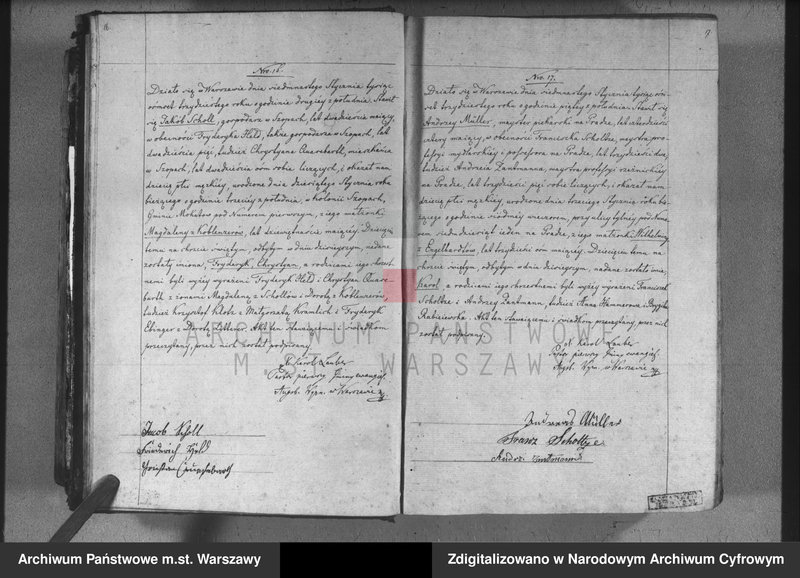 Nro. 16.
Działo się w Warszawie dnia siedmnastego Stycznia tysiąc
ośmset trzydziestego roku o godzinie drugiej z południa. Stawił
się Jakób Scholl, gospodarz w Szopach, lat dwadzieścia mający,
w obecności Fryderyka Held, także gospodarza w Szopach, lat
dwadzieścia pięć, tudzież Chrystyana mieszkańca
w Szopach, lat dwadzieścia ośm robie liczących, i okazał nam
dziecię płci męzkiej, urodzone dnia dziesiątego Stycznia roku
bieżącego o godzinie trzeciej z południa, w kolonii Szopach,
Gminie Mokotów pod Numerem pierwszym, z jego małżonki
Magdaleny z Koblenzerów, lat dziewiętnaście mającej. Dziecięciu
temu na chrzcie świętym, odbytym w dniu dzisiejszym, nadane
zostały imiona, Fryderyk, Chrystyan, a rodzicami jego chrzest-
nemi byli wyżej wyrażeni Fryderyk Held i Chrystyan
z żonami Magdaleną z Schollów i Dorotą z Koblenzerów,
tudzież Krzysztof z Małgorzatą i Fryderyk
Ebinger z Dorotą Akt ten stawającemu i świadkom
przeczytany, przez nich został podpisany.
Karol Lauber
Pastor pierwszy Gminy ewangiel.
Augsb. Wyzn. w Warszawie
Jacob Scholl
Friedrich Held
Christian
9
Nro. 17.
Działo się w Warszawie dnia siedmnastego Stycznia tysiąc ośm-
set trzydziestego roku o godzinie piątej z południa. Stawił się
Andrzej Müller, majster piekarski na Pradze, lat czterdzieści
cztery mający, w obecności Franciszka Scholtze, majstra pro-
fessyi mydlarskiej i possessora na Pradze, lat trzydzieści dwa,
tudzież Andrzeja majstra professyi rzeźnickiej
na Pradze, lat trzydzieści pięć robie liczących, i okazał nam
dziecię płci męzkiej urodzone dnia trzeciego Stycznia roku bie-
żącego o godzinie siódmej wieczorem, przy ulicy pod nume-
rem siedmdziesiąt jeden na Pradze, z jego małżonki Wilhelminy
z Engelhardtów, lat trzydzieści ośm mającej. Dziecięciu temu na
chrzcie świętym, odbytym w dniu dzisiejszym, nadane zostało imie,
Karol a rodzicami jego chrzestnemi byli wyżej wyrażeni Franciszek
Scholtze i Andrzej tudzież Anna i
Akt ten stawającemu i świadkom przeczytany, przez nich
został podpisany.
Karol Lauber
Pastor pierwszy Gminy ewangiel.
Augsb. Wyzn. w Warszawie
Andreas Müller
Franz
ARCHIWUM PAŃSTWOWE
M. ST. WARSZAWY
Archiwum Państwowe m.st. Warszawy
Zdigitalizowano w Narodowym Archiwum Cyfrowym